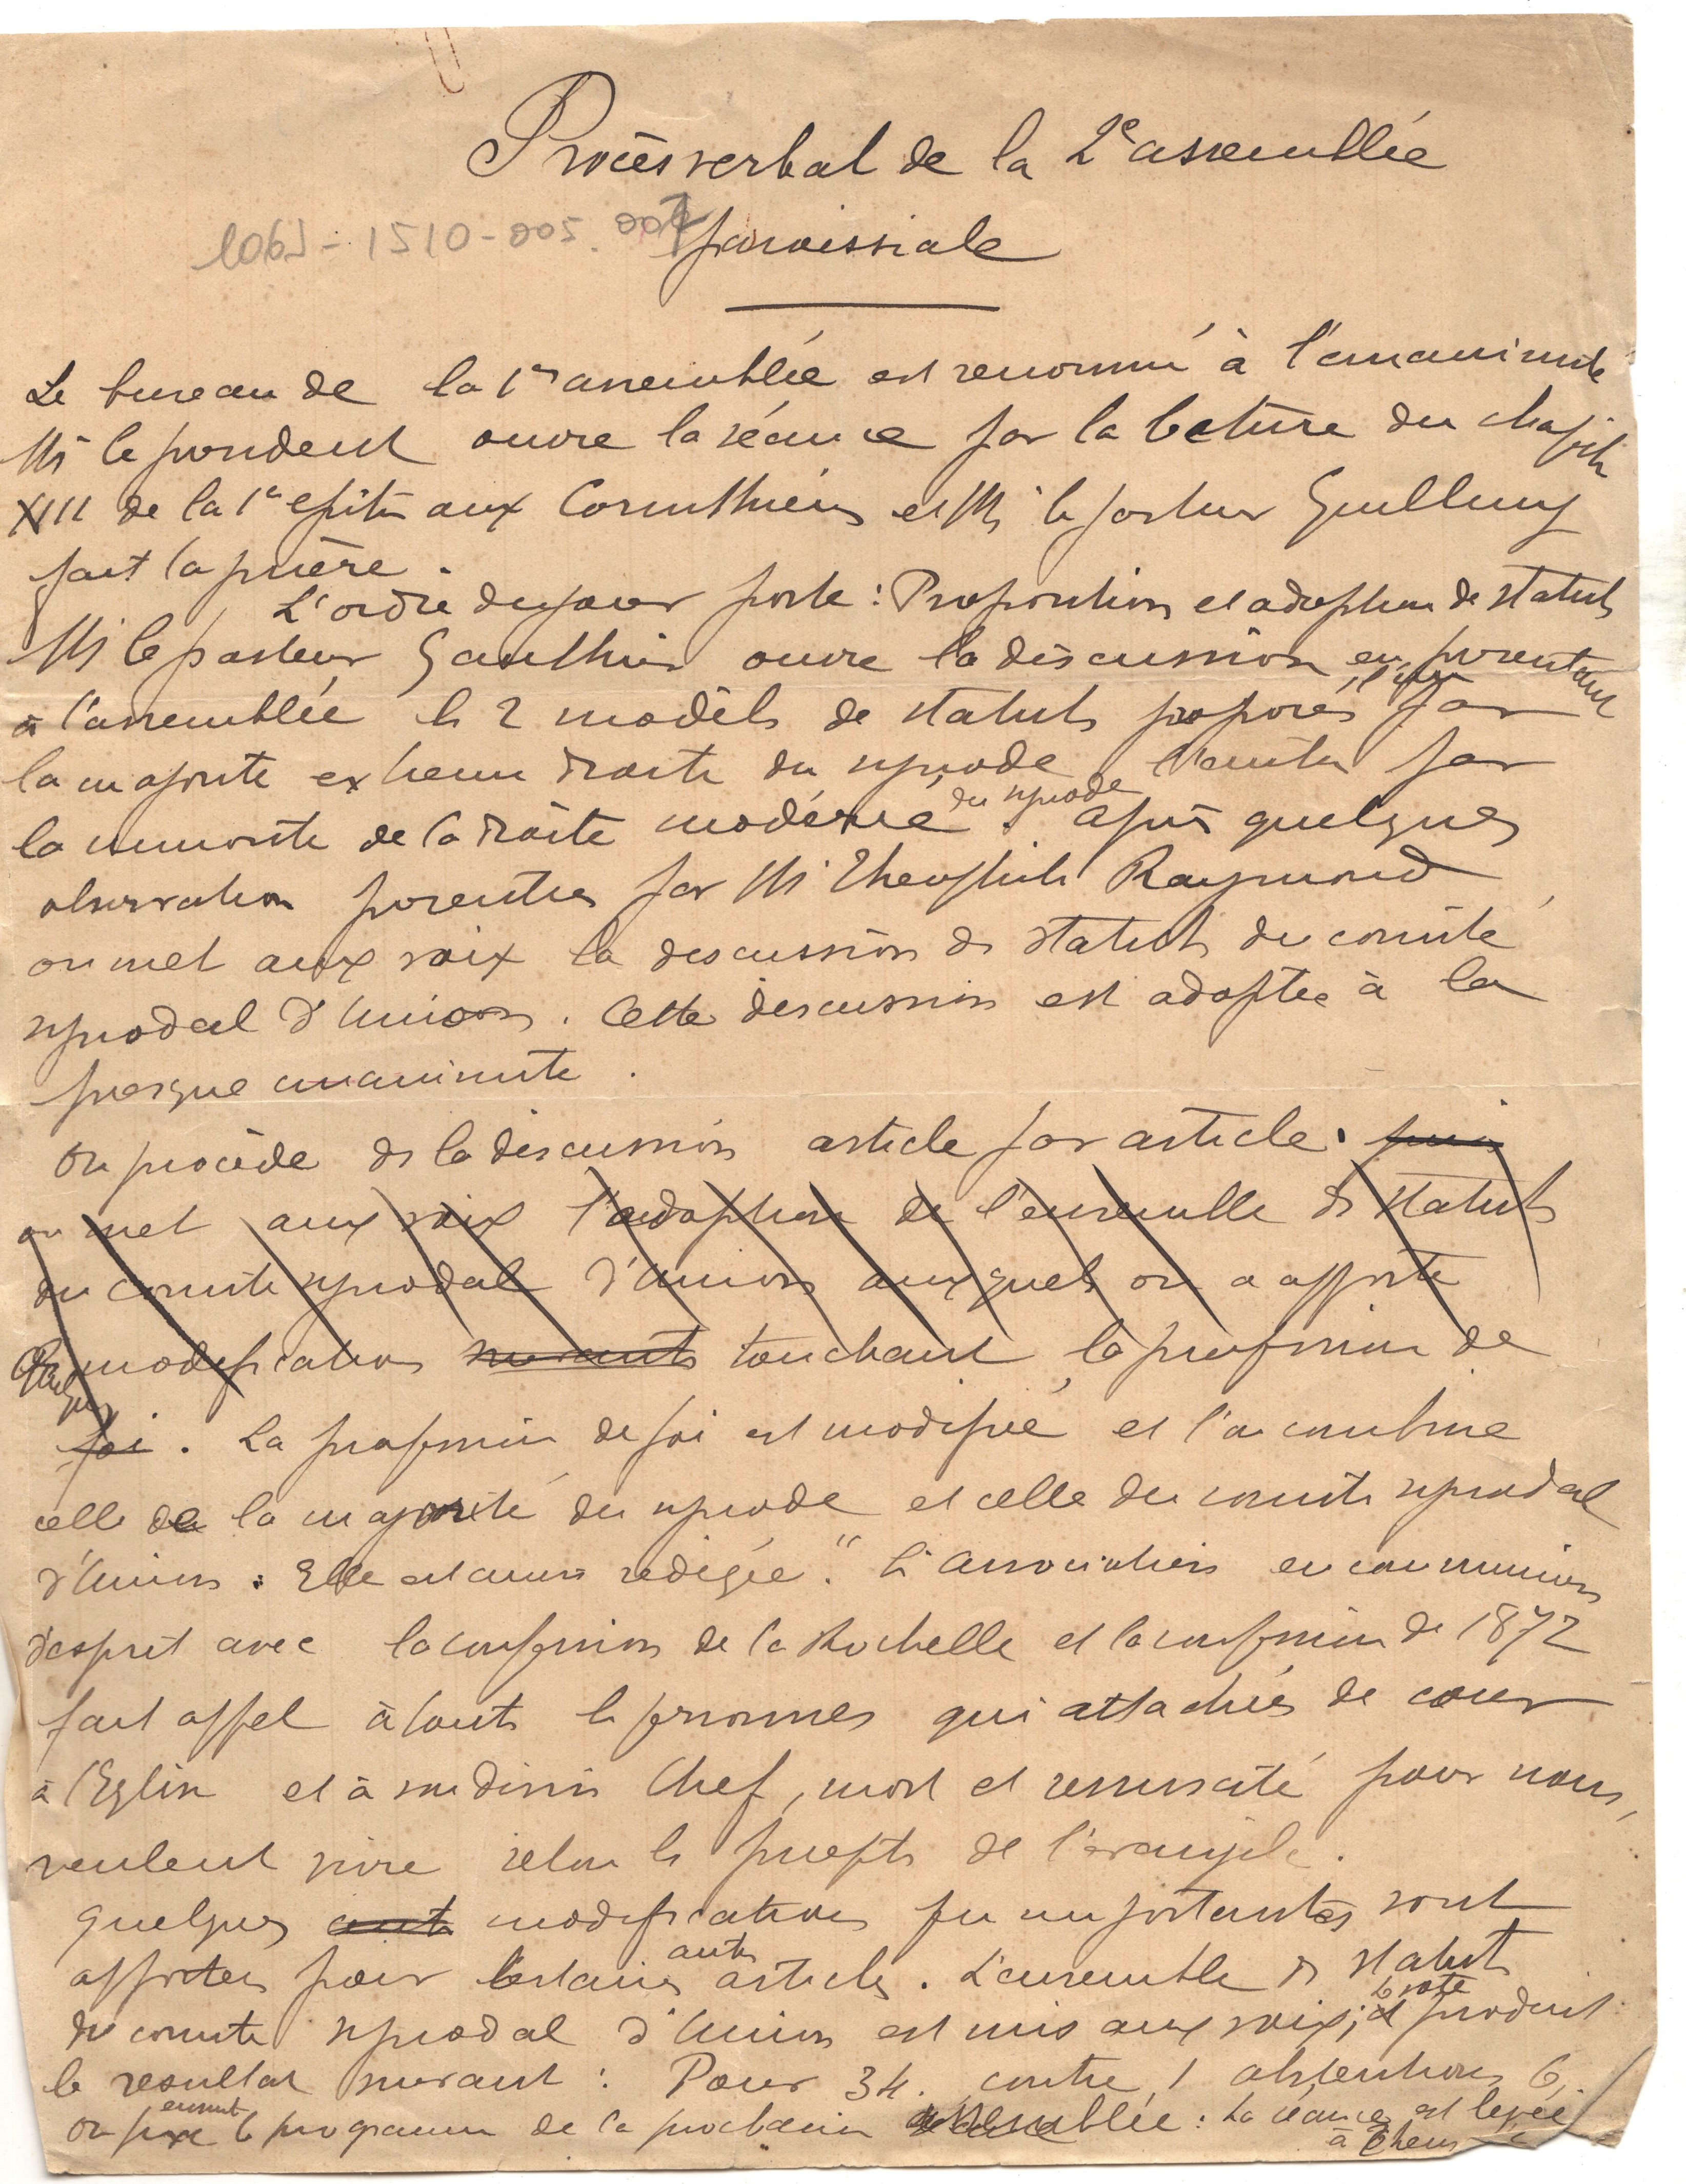 Procès verbal de la 2e assemblée
paroissiale
Le bureau de la 1re assemblée est renommé à l'unanimité
Mr le président ouvre la séance par la lecture du chapitre
XIII de la 1e epitre aux Corinthiens et Mr le pasteur Guillemy
fait la prière.
L'ordre du jour porte : Proposition et adoption de statuts
Mr le pasteur Gauthier ouvre la discussion en présentant
à l'assemblée les 2 modèles de statuts proposés l'un par
la majorité extreme droite du synode, l'autre par
la minorité de la droite modérée du synode. après quelques
observations présentées par Mr Theophile Raymond,
on met aux voix la discussion des statuts du comité
synodal d'Union. Cette discussion est adoptée à la
presque unanimité.
On procède ds la discussion article par article. puis
on met aux voix l'adoption de l'ensemble ds statuts
du comité synodal d'Union auxquels on a apporté
quelques modification suivants touchant la profession de
foi. La profession de foi est modifiée et l'on combine
celle de la majorité du synode et celle du comité synodal
d'Union : Elle est ainsi redigée. " L'association en communion
d'esprit avec la confession de la Rochelle et la confession de 1872
fait appel à touts les personnes qui attachées de cœur
à l'Eglise et à son divin Chef, mort et ressuscité pour nous,
veulent vivre selon les preceptes de l'évangile.
Quelques modifications peu importantes sont
apportées pour certains autres articles. L'ensemble ds statuts
du comité synodal d'Union est mis aux voix; le vote produit
le résultat suivant : Pour 34. contre 1 abstentions 6.
On fixe ensuite le programme de la prochaine assemblée : La séance est levée
à heures